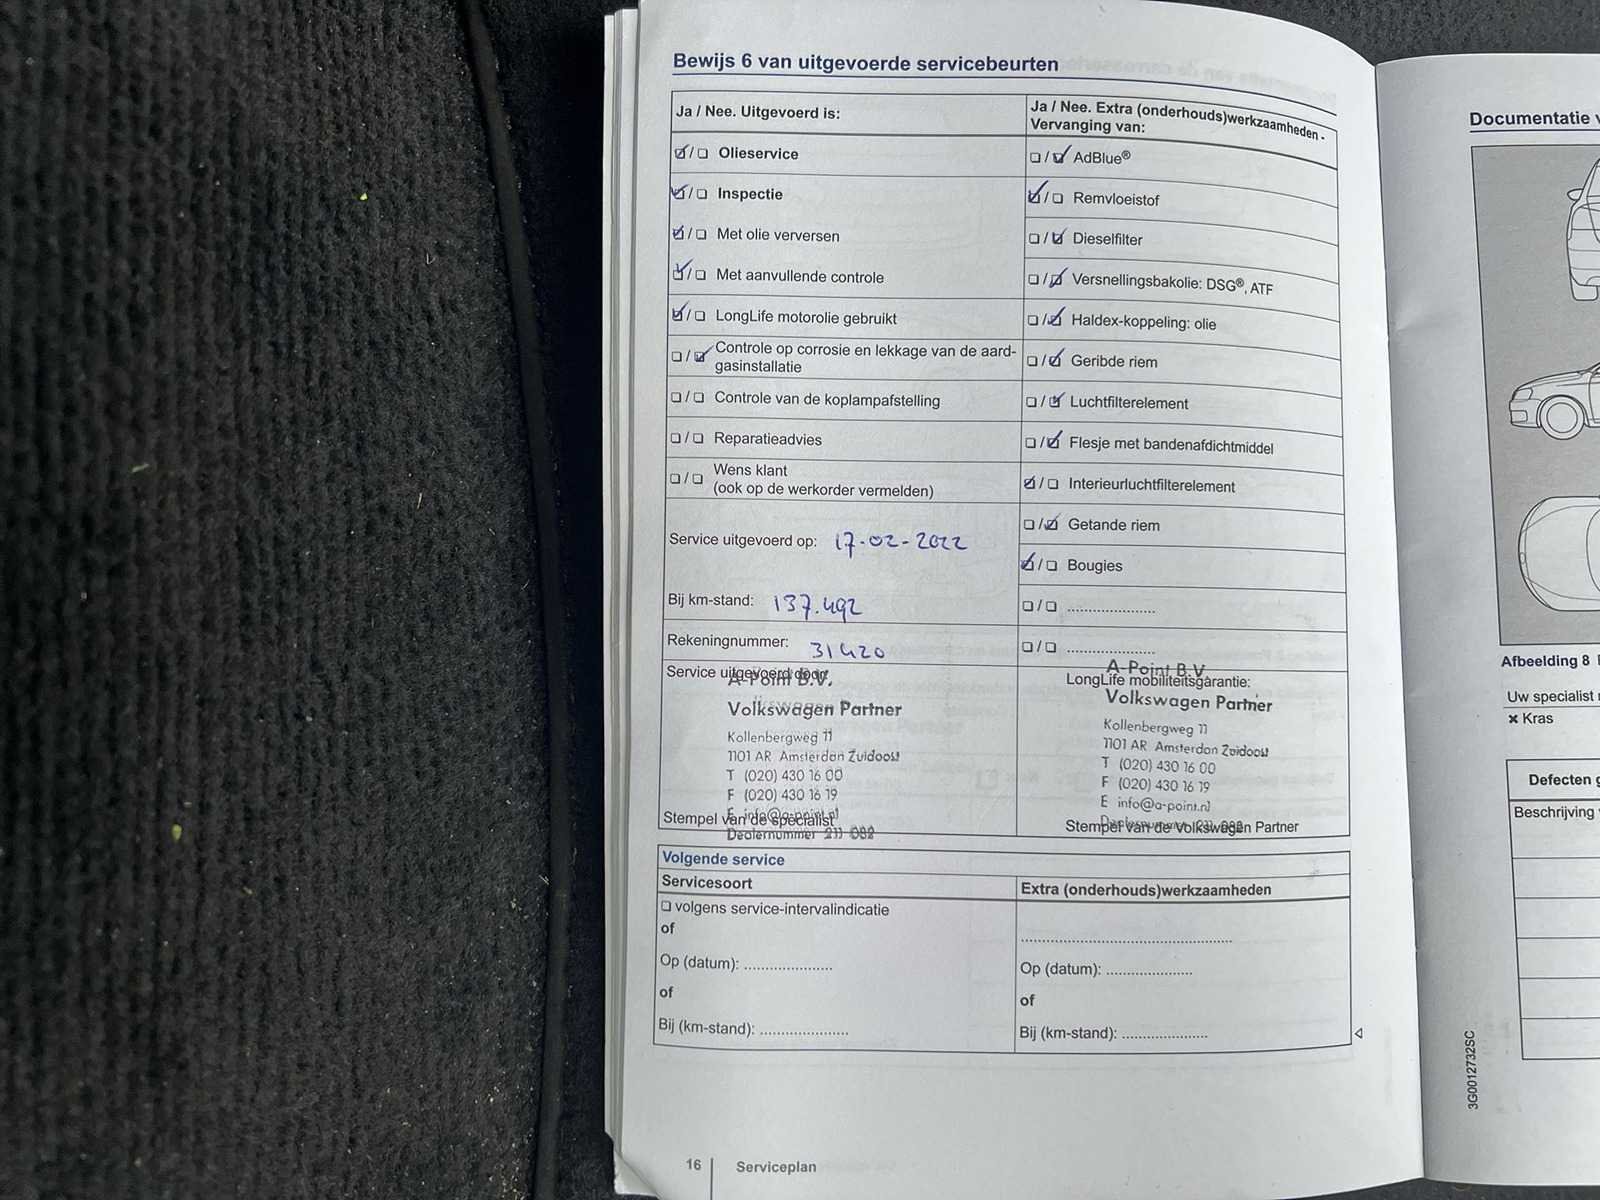 Bewijs 6 van uitgevoerde servicebeurten
Ja / Nee. Uitgevoerd is:
☑/☐ Olieservice
☑/☐ Inspectie
☑/☐ Met olie verversen
☑/☐ Met aanvullende controle
☑/☐ LongLife motorolie gebruikt
☐/☑ Controle op corrosie en lekkage van de aard-
gasinstallatie
☐/☐ Controle van de koplampafstelling
☐/☐ Reparatieadvies
☐/☐ Wens klant
(ook op de werkorder vermelden)
Service uitgevoerd op: 17-02-2022
Bij km-stand: 137.492
Rekeningnummer: 31420
Service uitgevoerd door:
A-Point B.V.
Volkswagen Partner
Kollenbergweg 11
1101 AR Amsterdam Zuidoost
T (020) 430 16 00
F (020) 430 16 19
E info@a-point.nl
Stempel van de specialist
Dealernummer 211 082
Ja / Nee. Extra (onderhouds)werkzaamheden -
Vervanging van:
☐/☑ AdBlue®
☑/☐ Remvloeistof
☐/☑ Dieselfilter
☐/☑ Versnellingsbakolie: DSG®, ATF
☐/☑ Haldex-koppeling: olie
☐/☑ Geribde riem
☐/☑ Luchtfilterelement
☐/☑ Flesje met bandenafdichtmiddel
☑/☐ Interieurluchtfilterelement
☐/☑ Getande riem
☑/☐ Bougies
☐/☐ ......................
☐/☐ ......................
A-Point B.V.
LongLife mobiliteitsgarantie:
Volkswagen Partner
Kollenbergweg 11
1101 AR Amsterdam Zuidoost
T (020) 430 16 00
F (020) 430 16 19
E info@a-point.nl
Stempel van de Volkswagen Partner
Volgende service
Servicesoort
☐ volgens service-intervalindicatie
of
Op (datum): ......................
of
Bij (km-stand): ......................
Extra (onderhouds)werkzaamheden
......................
Op (datum): ......................
of
Bij (km-stand): ......................
16 Serviceplan
Documentatie
Afbeelding 8
Uw specialist
✖ Kras
Defecten
Beschrijving
3G0012732SC